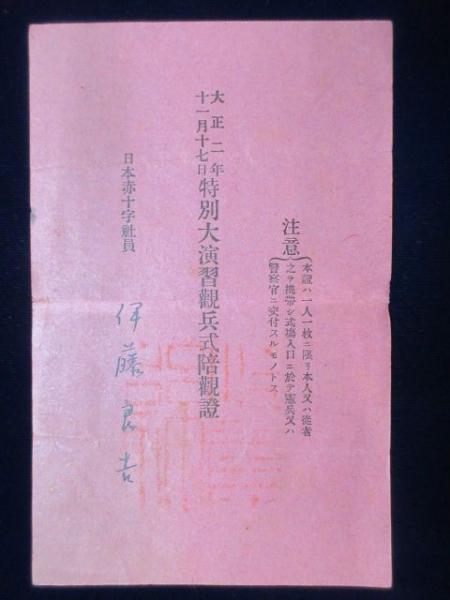 注意
本證ハ一人一枚ニ限リ本人又ハ從者
之ヲ携帶シ式場入口ニ於テ憲兵又ハ
警察官ニ交付スルモノトス
大正二年
十一月十七日
特別大演習觀兵式陪觀證
日本赤十字社員
伊藤良吉